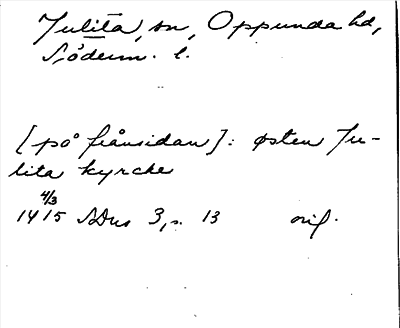 Julita, sn, Oppunda hd,
Söderm. l.
[på frånsidan]: østen Ju-
lita kyrche
4/3
1415 SDns 3, s. 13 orig.